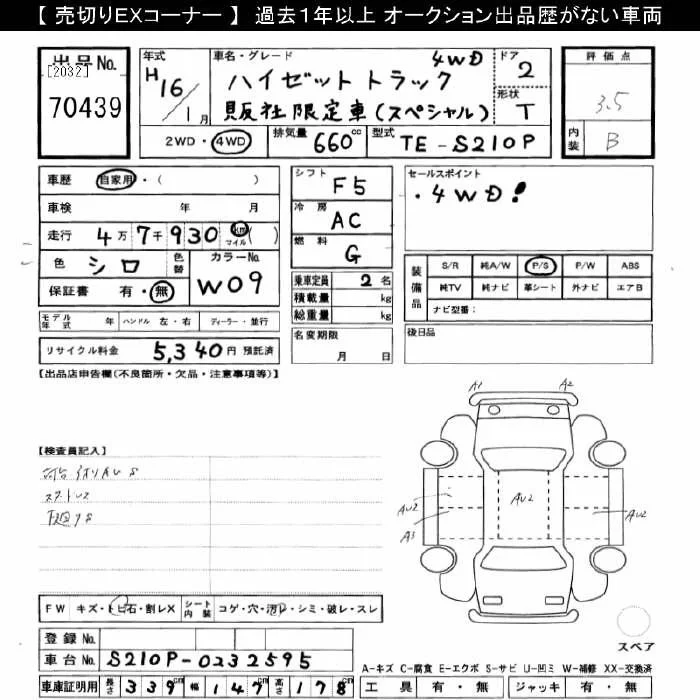 【 売切りEXコーナー 】 過去1年以上 オークション出品歴がない車両
出品No.
[2032]
70439
年式 H16/1月
車名・グレード 4WD
ハイゼットトラック
販社限定車(スペシャル)
ドア 2
形状 T
評価点 3.5
内装 B
2WD・4WD 排気量 660cc 型式 TE-S210P
車歴 自家用・( )
車検 年 月
走行 4万7千930 km マイル( )
色 シロ 色替 カラーNo. W09
保証書 有・無
シフト F5
冷房 AC
燃料 G
乗車定員 2名
積載量 kg
総重量 kg
セールスポイント
・4WD!
装備品
S/R 純A/W P/S P/W ABS
純TV 純ナビ 革シート 外ナビ エアB
ナビ型番:
モデル年式 年 ハンドル 左・右 ディーラー・並行
リサイクル料金 5,340円 預託済
名変期限 月 日
後日品
【出品店申告欄(不良箇所・欠品・注意事項等)】
【検査員記入】
A1 A2
AU2 AU2 AU2
A3
FW キズ・トビ石・割レX シート内装 コゲ・穴・汚レ・シミ・破レ・スレ
スペア
登録 No.
車台 No. S210P-0232595
A-キズ C-腐食 E-エクボ S-サビ U-凹ミ W-補修 XX-交換済
車庫証明用 長さ 339cm 幅 147cm 高さ 178cm
工具 有・無 ジャッキ 有・無